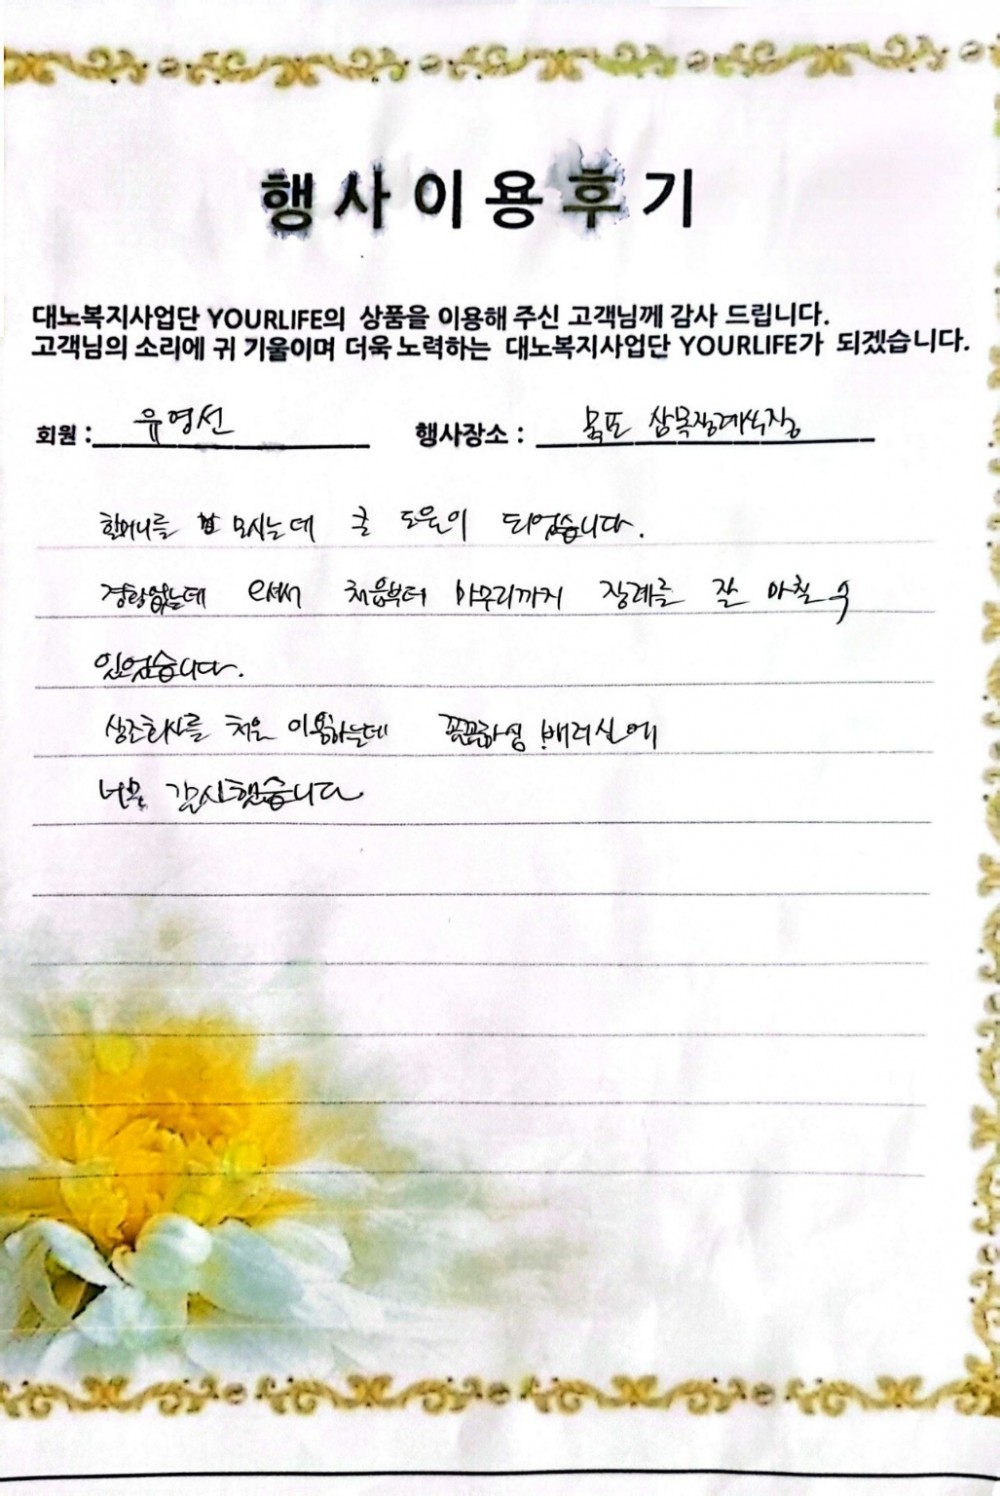 행사이용후기
대노복지사업단 YOURLIFE의 상품을 이용해 주신 고객님께 감사 드립니다.
고객님의 소리에 귀 기울이며 더욱 노력하는 대노복지사업단 YOURLIFE가 되겠습니다.
회원 : 유영선 행사장소 : 목포 삼목장례식장
할머니를 모시는데 큰 도움이 되었습니다.
경황없는데 오셔서 처음부터 마무리까지 장례를 잘 마칠 수
있었습니다.
상조회사를 처음 이용하는데 꼼꼼하심 배려심에
너무 감사했습니다